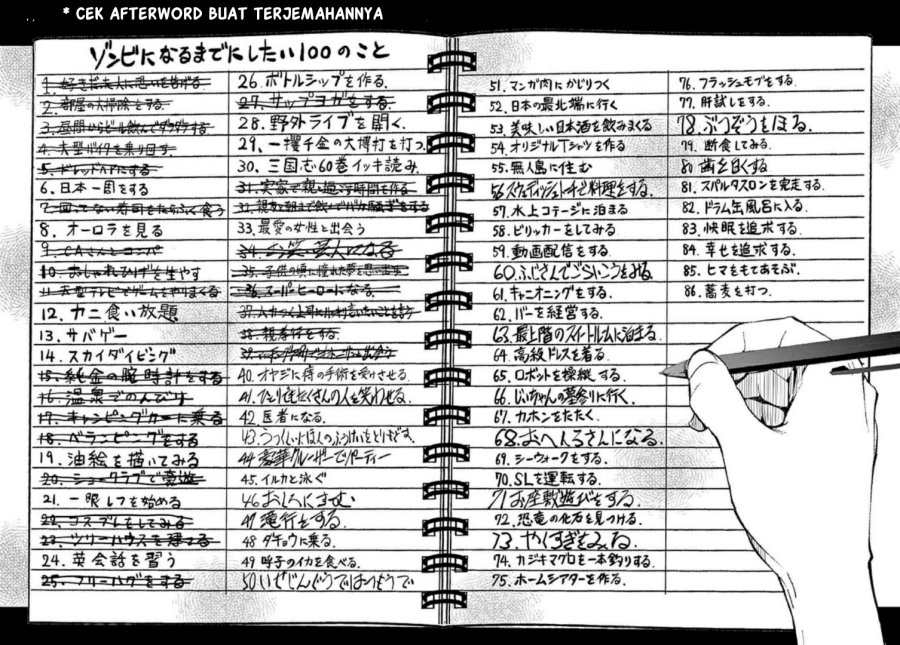 * CEK AFTERWORD BUAT TERJEMAHANNYA
ゾンビになるまでにしたい100のこと
1. 好きだった人に思いを告げる
2. 部屋の大掃除をする
3. 昼間からビール飲んでダラダラする
4. 大型バイクを乗り回す
5. ドレッドヘアにする
6. 日本一周をする
7. 回ってない寿司をたらふく食う
8. オーロラを見る
9. CAさんとコンパ
10. おしゃれひげを生やす
11. 大型テレビでゲームをやりまくる
12. カニ食い放題
13. サバゲー
14. スカイダイビング
15. 純金の腕時計をする
16. 温泉でのんびり
17. キャンピングカーに乗る
18. ベランピングをする
19. 油絵を描いてみる
20. ショークラブで豪遊
21. 一眼レフを始める
22. コスプレをしてみる
23. ツリーハウスを建てる
24. 英会話を習う
25. フリーハグをする
26. ボトルシップを作る
27. サップヨガをする
28. 野外ライブを開く.
29. 一攫千金の大博打を打つ
30. 三国志60巻イッキ読み
31. 実家で親と過ごす時間を作る
32. 親友と朝まで飲んでバカ騒ぎをする
33. 最愛の女性と出会う
34. お笑い芸人になる
35. 子供の頃に憧れた夢を思い出す
36. スーパーヒーローになる.
37. ムカつく上司に言いたいことを言う
38. 親孝行をする
40. オヤジに痔の手術を受けさせる.
41. ひとりでもたくさんの人を笑わせる.
42. 医者になる.
43. うつくしいにほんのふうけいをとりもどす.
44. 豪華クルーザーでパーティー
45. イルカと泳ぐ
46. おしろにすむ
47. 滝行をする.
48. ダチョウに乗る.
49. 呼子のイカを食べる.
51. マンガ肉にかじりつく
52. 日本の最北端に行く
53. 美味しい日本酒を飲みまくる
54. オリジナルTシャツを作る
55. 無人島に住む
56. スウェーディッシュトーチで料理をする.
57. 水上コテージに泊まる
58. ビリッカーをしてみる.
59. 動画配信をする.
60. ふじさんでごらいこうをみる
61. キャニオニングをする.
62. バーを経営する.
63. 最上階のスイートルームに泊まる.
64. 高級ドレスを着る.
65. ロボットを操縦する.
66. じいちゃんの墓参りに行く.
67. カホンをたたく.
68. おへんろさんになる.
69. シーウォークをする.
70. SLを運転する.
71. お座敷遊びをする.
72. 恐竜の化石を見つける.
73. やくすぎをみる.
74. カジキマグロを一本釣りする.
75. ホームシアターを作る.
76. フラッシュモブをする.
77. 肝試しをする.
78. ぶつぞうをほる.
79. 断食してみる.
80. 歯を白くする
81. スパルタスロンを完走する.
82. ドラム缶風呂に入る.
83. 快眠を追求する.
84. 幸せを追求する.
85. ヒマをもてあそぶ.
86. 蕎麦を打つ.